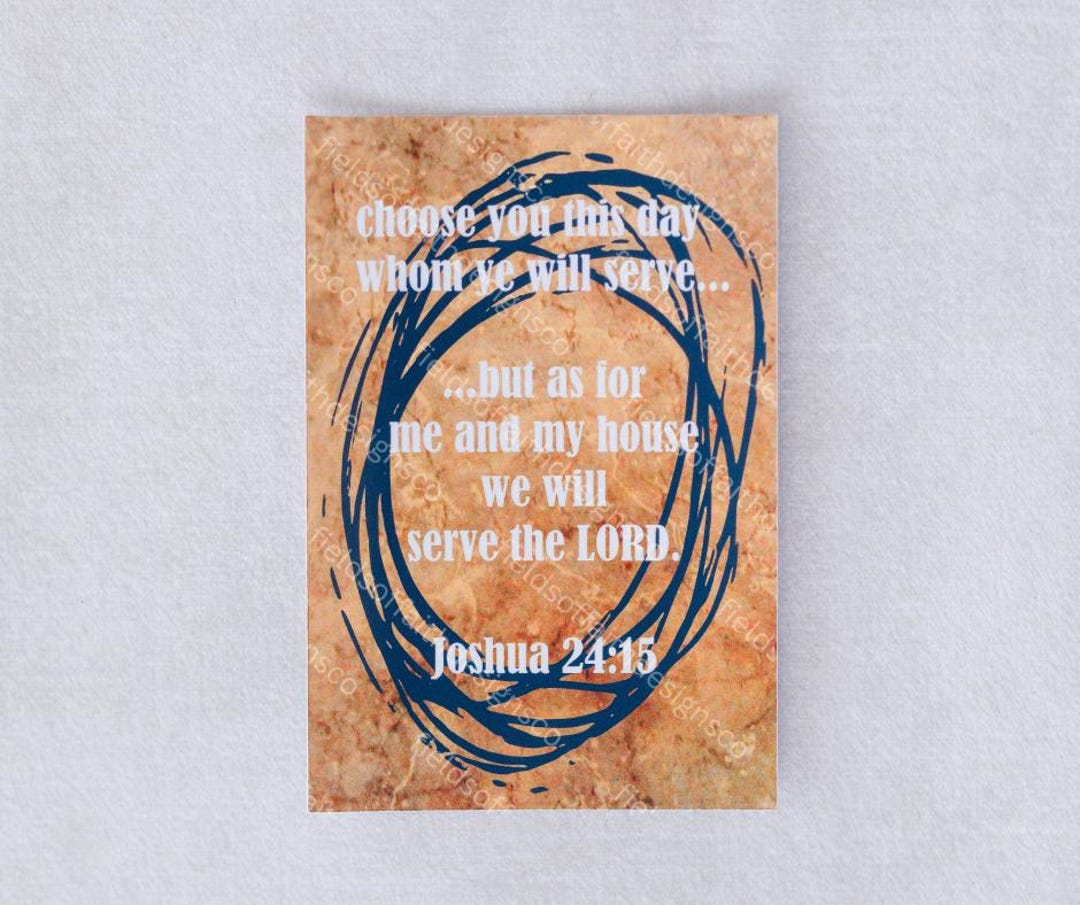 choose you this day
whom ye will serve...
...but as for
me and my house
we will
serve the LORD.
Joshua 24:15
fieldsoffaithdesignsco